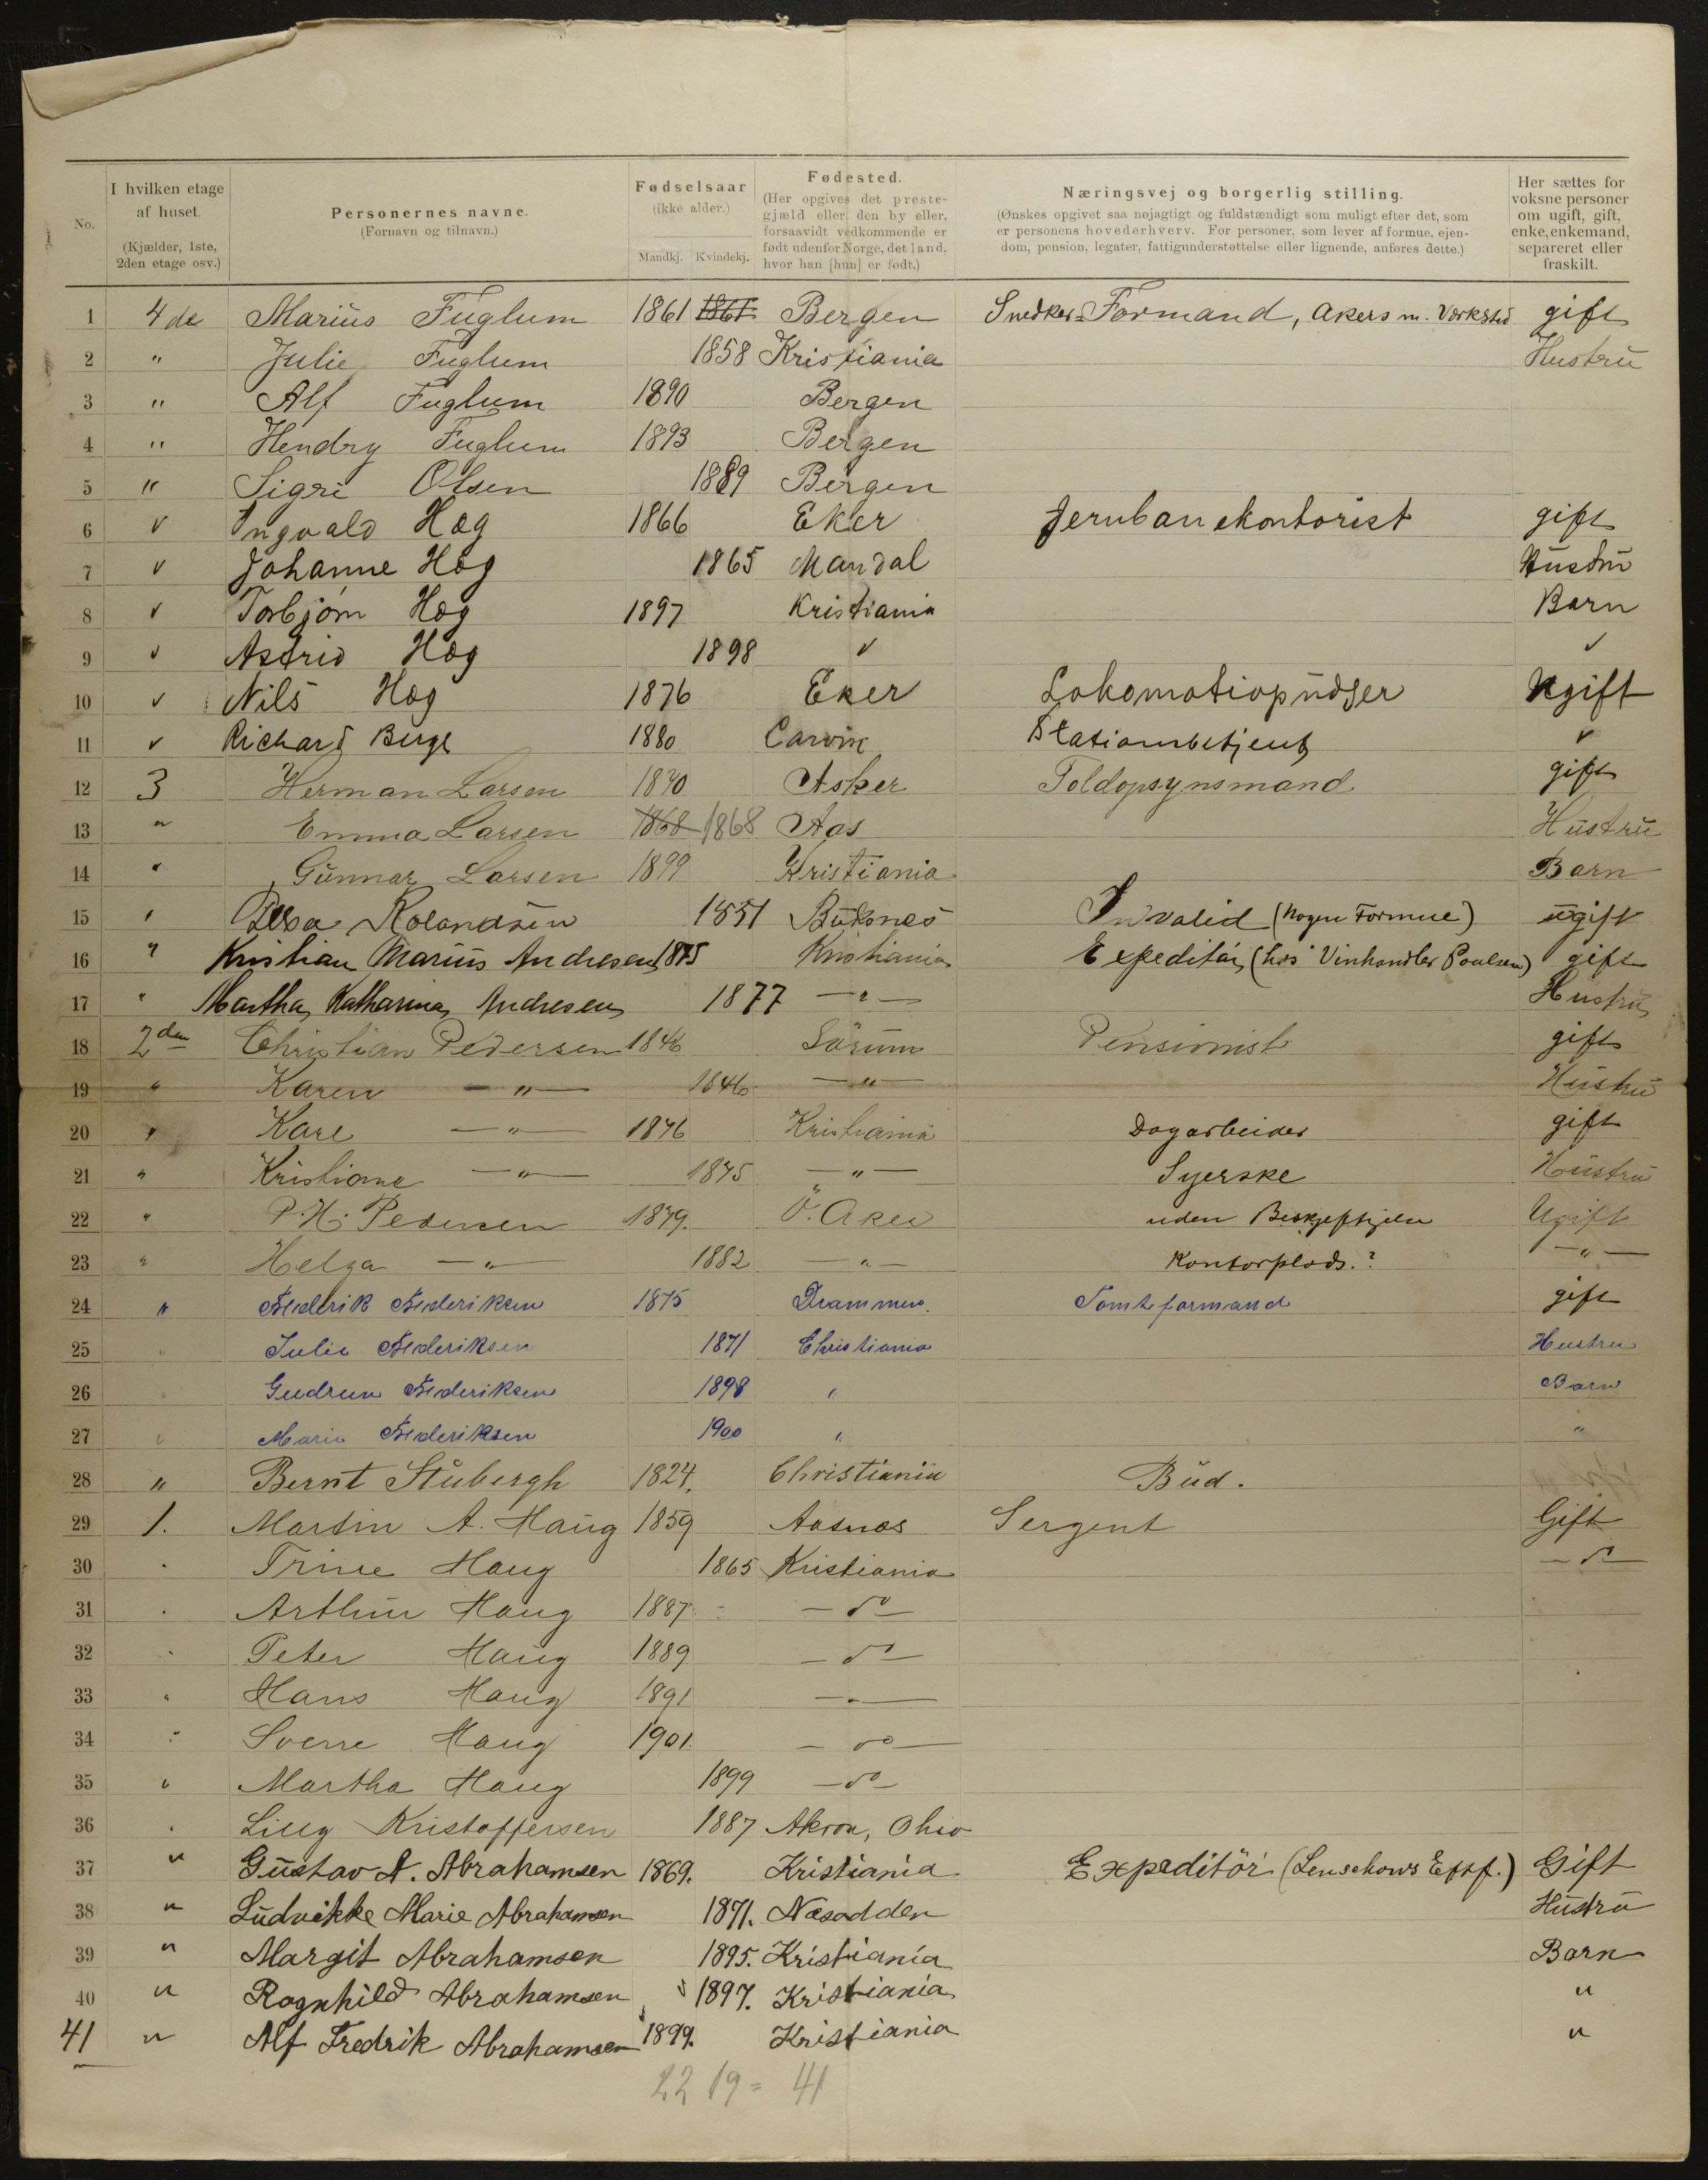 No.
I hvilken etage af huset. (Kjælder, 1ste, 2den etage osv.)
Personernes navne. (Fornavn og tilnavn.)
Fødselsaar (ikke alder.) Mandkj. Kvindekj.
Fødested. (Her opgives det prestegjæld eller den by eller, forsaavidt vedkommende er født udenfor Norge, det land, hvor han [hun] er født.)
Næringsvej og borgerlig stilling. (Ønskes opgivet saa nøjagtigt og fuldstændigt som muligt efter det, som er personens hovederhverv. For personer, som lever af formue, ejendom, pension, legater, fattigunderstøttelse eller lignende, anføres dette.)
Her sættes for voksne personer om ugift, gift, enke, enkemand, separeret eller fraskilt.
1 4de Marius Fuglum 1861 1861 Bergen Snedker=Formand, Akers m. Værksted gift
2 " Julie Fuglum 1858 Kristiania Hustru
3 " Alf Fuglum 1890 Bergen
4 " Hendry Fuglum 1893 Bergen
5 " Sigri Olsen 1889 Bergen
6 " Ingvald Hæg 1866 Eker Jernbanekontorist gift
7 " Johanne Hæg 1865 Mandal Hustru
8 " Torbjørn Hæg 1897 Kristiania Barn
9 " Astrid Hæg 1898 " "
10 " Nils Hæg 1876 Eker Lokomotivpudser Ugift
11 " Richard Berge 1880 Stationsbetjent "
12 3 Herman Larsen 1870 Asker Toldopsynsmand gift
13 " Emma Larsen 1868 1868 Aas Hustru
14 " Gunnar Larsen 1899 Kristiania Barn
15 " Rolandsen 1851 Buksnes Invalid (Nogen Formue) ugift
16 " Kristian Marius Andresen 1875 Kristiania Expeditør (hos Vinhandler Poulsen) gift
17 " Martha Katharina Andresen 1877 —"— Hustru
18 2den Christian Pedersen 1846 Sørum Pensionist gift
19 " Karen —"— 1846 —"— Hustru
20 " Karl —"— 1876 Kristiania Dagarbeider gift
21 " Kristiane —"— 1875 —"— Syerske Hustru
22 " P. H. Pedersen 1879. Ø. Aker uden Beskjeftigelse Ugift
23 " Helga —"— 1882 —"— Kontorplads.? —"—
24 " Frederik Frederiksen 1875 Drammen. Tomteformand gift
25 " Julie Frederiksen 1871 Christiania Hustru
26 Gudrun Frederiksen 1898 " Barn
27 " Marie Frederiksen 1900 " "
28 " Bernt Stubergh 1824. Christiania Bud.
29 1. Martin A. Haug 1859 Aasnes Sergent Gift
30 " Trine Haug 1865 Kristiania — do —
31 " Arthur Haug 1887 — do —
32 " Peter Haug 1889 — do —
33 " Hans Haug 1891 —"—
34 " Sverre Haug 1901. — do —
35 " Martha Haug 1899 — do —
36 " Lilly Kristoffersen 1887 Akron, Ohio
37 " Gustav A. Abrahamsen 1869. Kristiania Expeditör (Lenschows Eftf.) Gift
38 " Ludvikke Marie Abrahamsen 1871. Næsodden Hustru
39 " Margit Abrahamsen 1895. Kristiania Barn
40 " Ragnhild Abrahamsen 1897. Kristiania "
41 " Alf Fredrik Abrahamsen 1899. Kristiania "
22 19 = 41